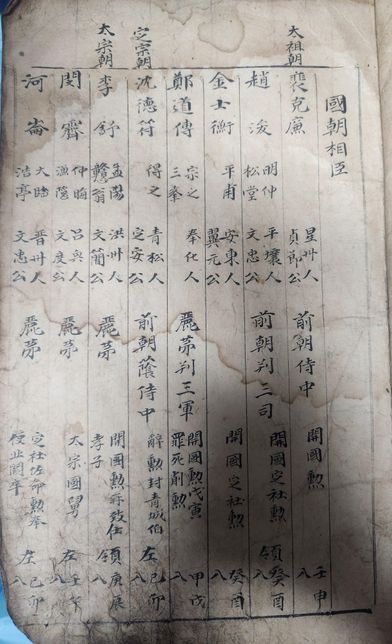 國朝相臣
太祖朝
裵克廉 星州人 貞節公 前朝侍中 開國勲 壬申
趙浚 明仲 松堂 平壤人 文忠公 前朝判三司 開國定社勲 領 癸酉 八
金士衡 平甫 安東人 翼元公 開國定社勲 癸酉 八
鄭道傳 宗之 三峯 奉化人 麗苐判三軍 開國勲戊寅 罪死削勲 甲戌 八
定宗朝
沈德符 得之 青松人 定安公 前朝蔭侍中 辭勲封青城伯 左 己卯 八
太宗朝
李舒 孟陽 戇翁 洪州人 文簡公 麗苐 開國勲再致仕 孝子 領 庚辰
閔霽 仲晦 漁隱 呂興人 文度公 麗苐 太宗國舅 左 八
河崙 大臨 浩亭 晋州人 文忠公 麗苐 定社佐命勲 左 己卯 八